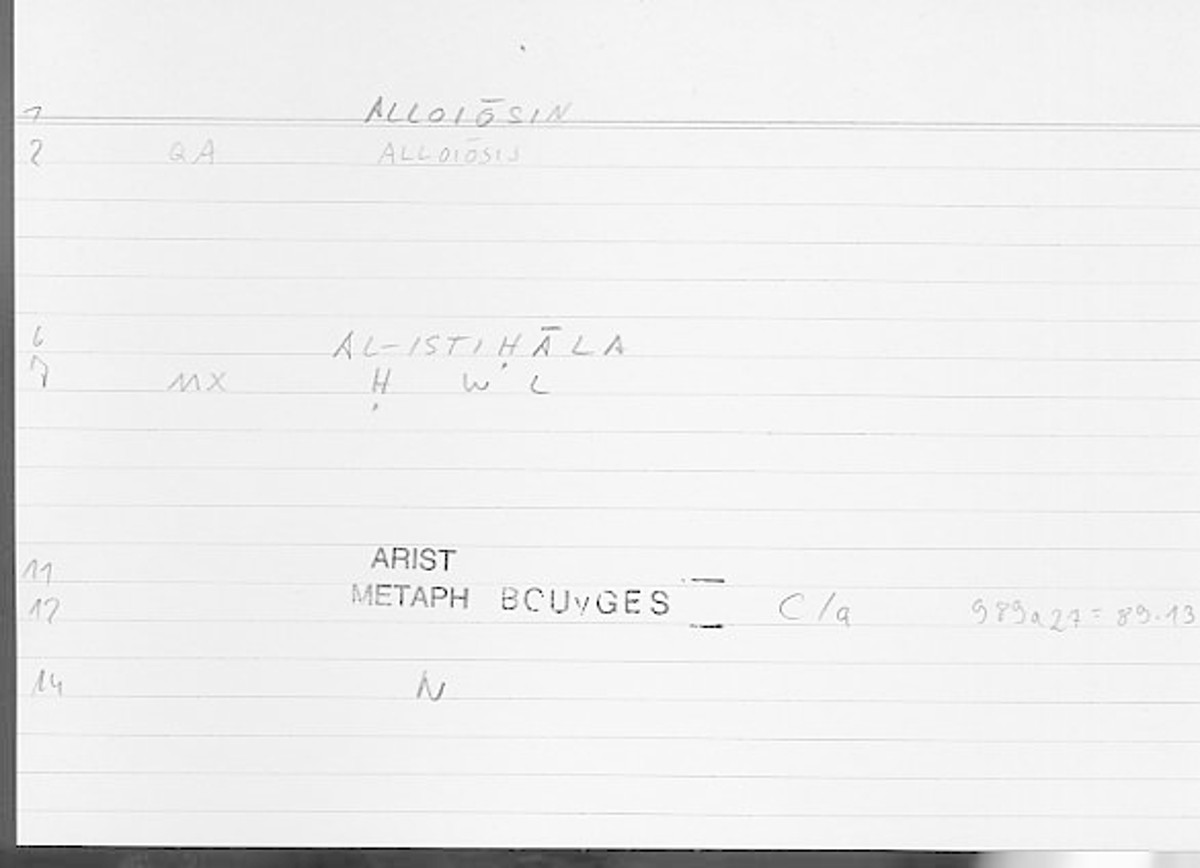 1 ALLOIŌSIN
2 QA ALLOIŌSIS
6 AL-ISTIḤĀLA
7 MX Ḥ W L
ARIST
11
12 METAPH BOUYGES C/a 989a27=89.13
14 N